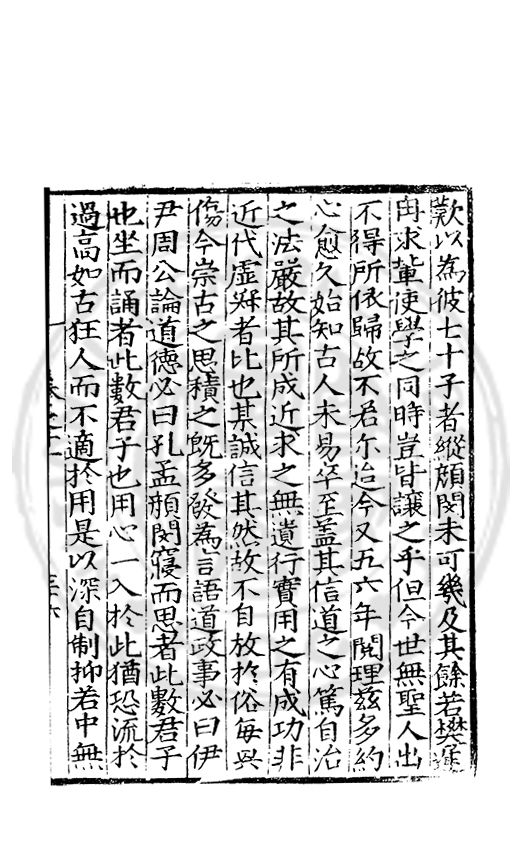 歎以為彼七十子者縱顏閔未可幾及其餘若樊遲
冉求輩使學之同時豈皆讓之乎但今世無聖人出
不得所依歸故不若尔迨今又五六年閱理茲多約
心愈久始知古人未易卒至盖其信道之心篤自治
之法嚴故其所成近求之無遺行實用之有成功非
近代虛殍者比也某誠信其然故不自放於俗每與
傷今崇古之思積之旣多發為言語道政事必曰伊
尹周公論道德必曰孔孟顏閔寢而思者此數君子
也坐而誦者此數君子也用心一入於此猶恐流於
過高如古狂人而不適於用是以深自制抑若中無